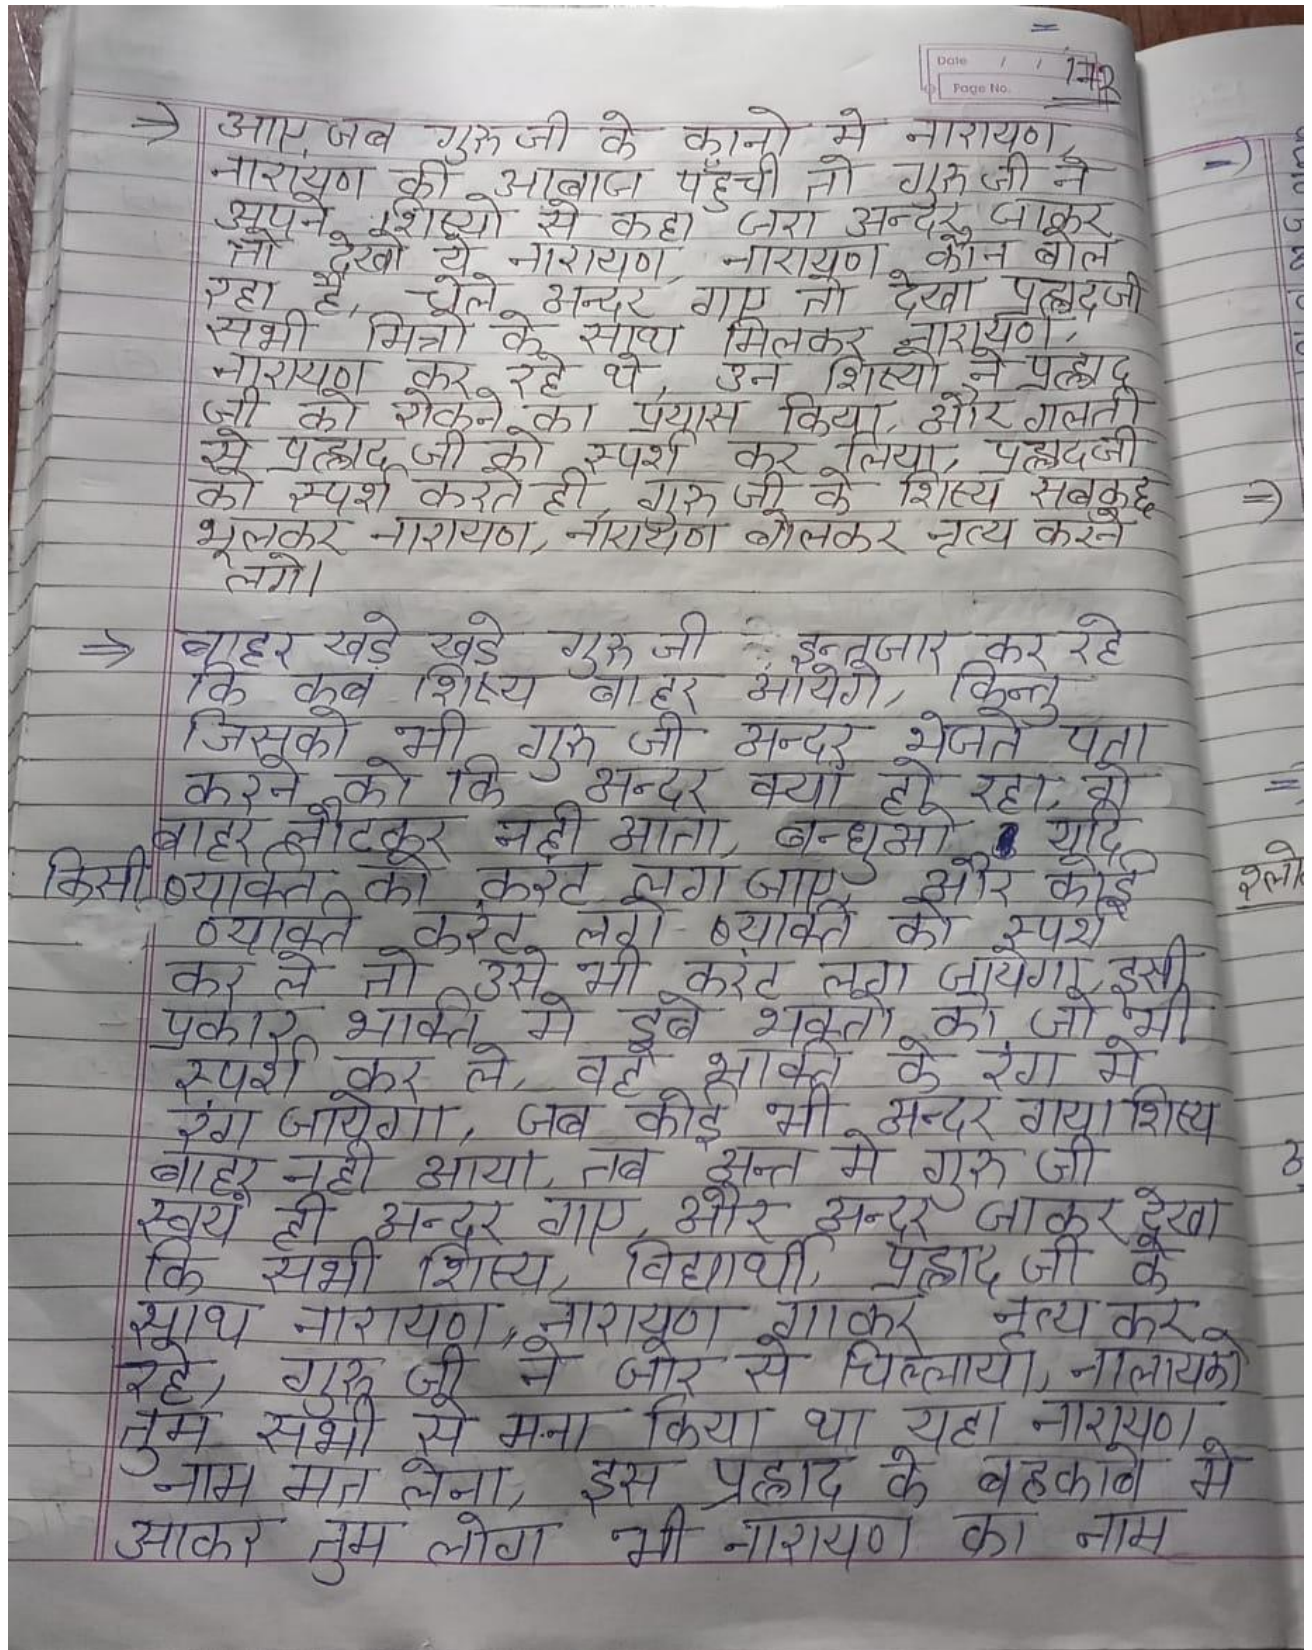 Date / / 172
Page No.
⇒ आए, जब गुरु जी के कानो मे नारायण,
नारायण की आबाज पहुँची तो गुरु जी ने
अपने शिष्यो से कहा जरा अन्दर जाकर
तो देखो ये नारायण, नारायण कौन बोल
रहा है, चेले अन्दर गाए तो देखा प्रह्लादजी
सभी मित्रो के साथ मिलकर नारायण,
नारायण कर रहे थे, उन शिष्यो ने प्रह्लाद
जी को रोकने का प्रयास किया, और गलती
से प्रह्लाद जी को स्पर्श कर लिया, प्रह्लादजी
को स्पर्श करते ही, गुरु जी के शिष्य सबकुछ
भूलकर नारायण, नारायण बोलकर नृत्य करने
लगे।
⇒ बाहर खडे खडे गुरु जी इन्तजार कर रहे
कि कब शिष्य बाहर आयेगे, किन्तु
जिसको भी गुरु जी अन्दर भेजते पता
करने को कि अन्दर क्या हो रहा, वो
बाहर लौटकर नही आता, बन्धुओ यदि
किसी व्यक्ति को करंट लग जाए, और कोई
व्यक्ति करंट लगे व्यक्ति को स्पर्श
कर ले तो उसे भी करंट लग जायेगा, इसी
प्रकार भक्ति मे डूबे भक्तो को जो भी
स्पर्श कर ले, वह भक्ति के रंग मे
रंग जायेगा, जब कोई भी अन्दर गया शिष्य
बाहर नही आया, तब अन्त मे गुरु जी
स्वयं ही अन्दर गाए, और अन्दर जाकर देखा
कि सभी शिष्य, विद्यार्थी, प्रह्लाद जी के
साथ नारायण, नारायण गाकर नृत्य कर
रहे, गुरु जी ने जोर से चिल्लाया, नालायको
तुम सभी से मना किया था यहा नारायण
नाम मत लेना, इस प्रह्लाद के बहकाबे मे
आकर तुम लोग भी नारायण का नाम